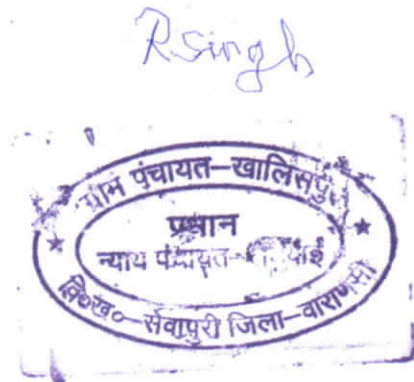 RSingh
ग्राम पंचायत-खालिसपुर
प्रधान
न्याय पंचायत-
वि०ख०-सेवापुरी जिला-वाराणसी